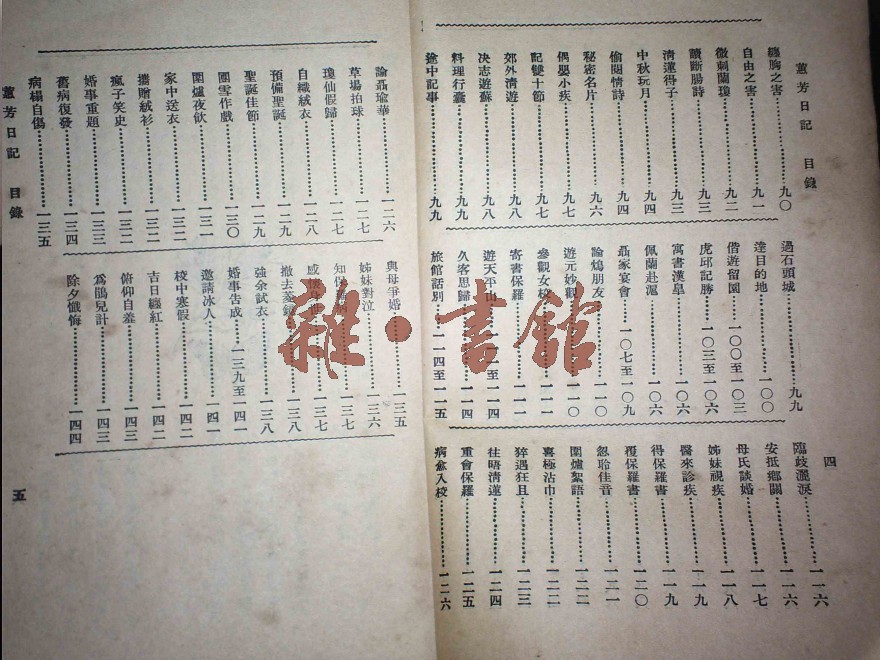 蕙芳日記 目錄
四
纏胸之害⋯⋯九〇
自由之害⋯⋯九一
微刺蘭瓊⋯⋯九二
讀斷腸詩⋯⋯九三
清蓮得子⋯⋯九三
中秋玩月⋯⋯九四
偷閱情詩⋯⋯九四
秘密名片⋯⋯九六
偶嬰小疾⋯⋯九七
記雙十節⋯⋯九七
郊外清遊⋯⋯九八
決志遊蘇⋯⋯九八
料理行囊⋯⋯九九
途中記事⋯⋯九九
過石頭城⋯⋯九九
達目的地⋯⋯一〇〇
偕遊留園⋯⋯一〇〇至一〇三
虎邱記勝⋯⋯一〇三至一〇六
寓書漢皋⋯⋯一〇六
佩蘭赴滬⋯⋯一〇六
聶家宴會⋯⋯一〇七至一〇九
論嬀朋友⋯⋯一一〇
遊元妙觀⋯⋯一一〇
參觀女校⋯⋯一一一
寄書保羅⋯⋯一一一
遊天平山⋯⋯一一一至一一四
久客思歸⋯⋯一一四
旅館話別⋯⋯一一四至一一五
臨歧灑淚⋯⋯一一六
安抵鄉關⋯⋯一一六
母氏談婚⋯⋯一一七
姊妹視疾⋯⋯一一八
醫來診疾⋯⋯一一九
得保羅書⋯⋯一一九
覆保羅書⋯⋯一二〇
忽聆佳音⋯⋯一二一
圍爐絮語⋯⋯一二二
喜極沾巾⋯⋯一二二
猝遇狂且⋯⋯一二三
往晤清蓮⋯⋯一二四
重會保羅⋯⋯一二五
病愈入校⋯⋯一二六
論聶瑜華⋯⋯一二六
草場拍球⋯⋯一二七
瓊仙假歸⋯⋯一二七
自織絨衣⋯⋯一二八
預備聖誕⋯⋯一二九
聖誕佳節⋯⋯一二九
團雪作戲⋯⋯一三〇
圍爐夜飲⋯⋯一三一
家中送衣⋯⋯一三二
攜贈絨衫⋯⋯一三二
瘋子笑史⋯⋯一三三
婚事重題⋯⋯一三三
舊病復發⋯⋯一三四
病榻自傷⋯⋯一三五
與母爭婚⋯⋯一三五
姊妹對泣⋯⋯一三六
知保⋯⋯一三七
感懷身世⋯⋯一三七
撤去菱鏡⋯⋯一三八
強余試衣⋯⋯一三八
婚事告成⋯⋯一三九至一四一
邀請冰人⋯⋯一四一
校中寒假⋯⋯一四二
吉日纏紅⋯⋯一四二
俯仰自羞⋯⋯一四三
為鵑兒計⋯⋯一四三
除夕懺悔⋯⋯一四四
蕙芳日記 目錄
五
雜·書館